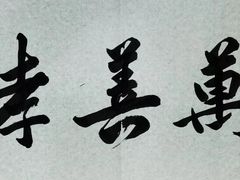 萬善孝